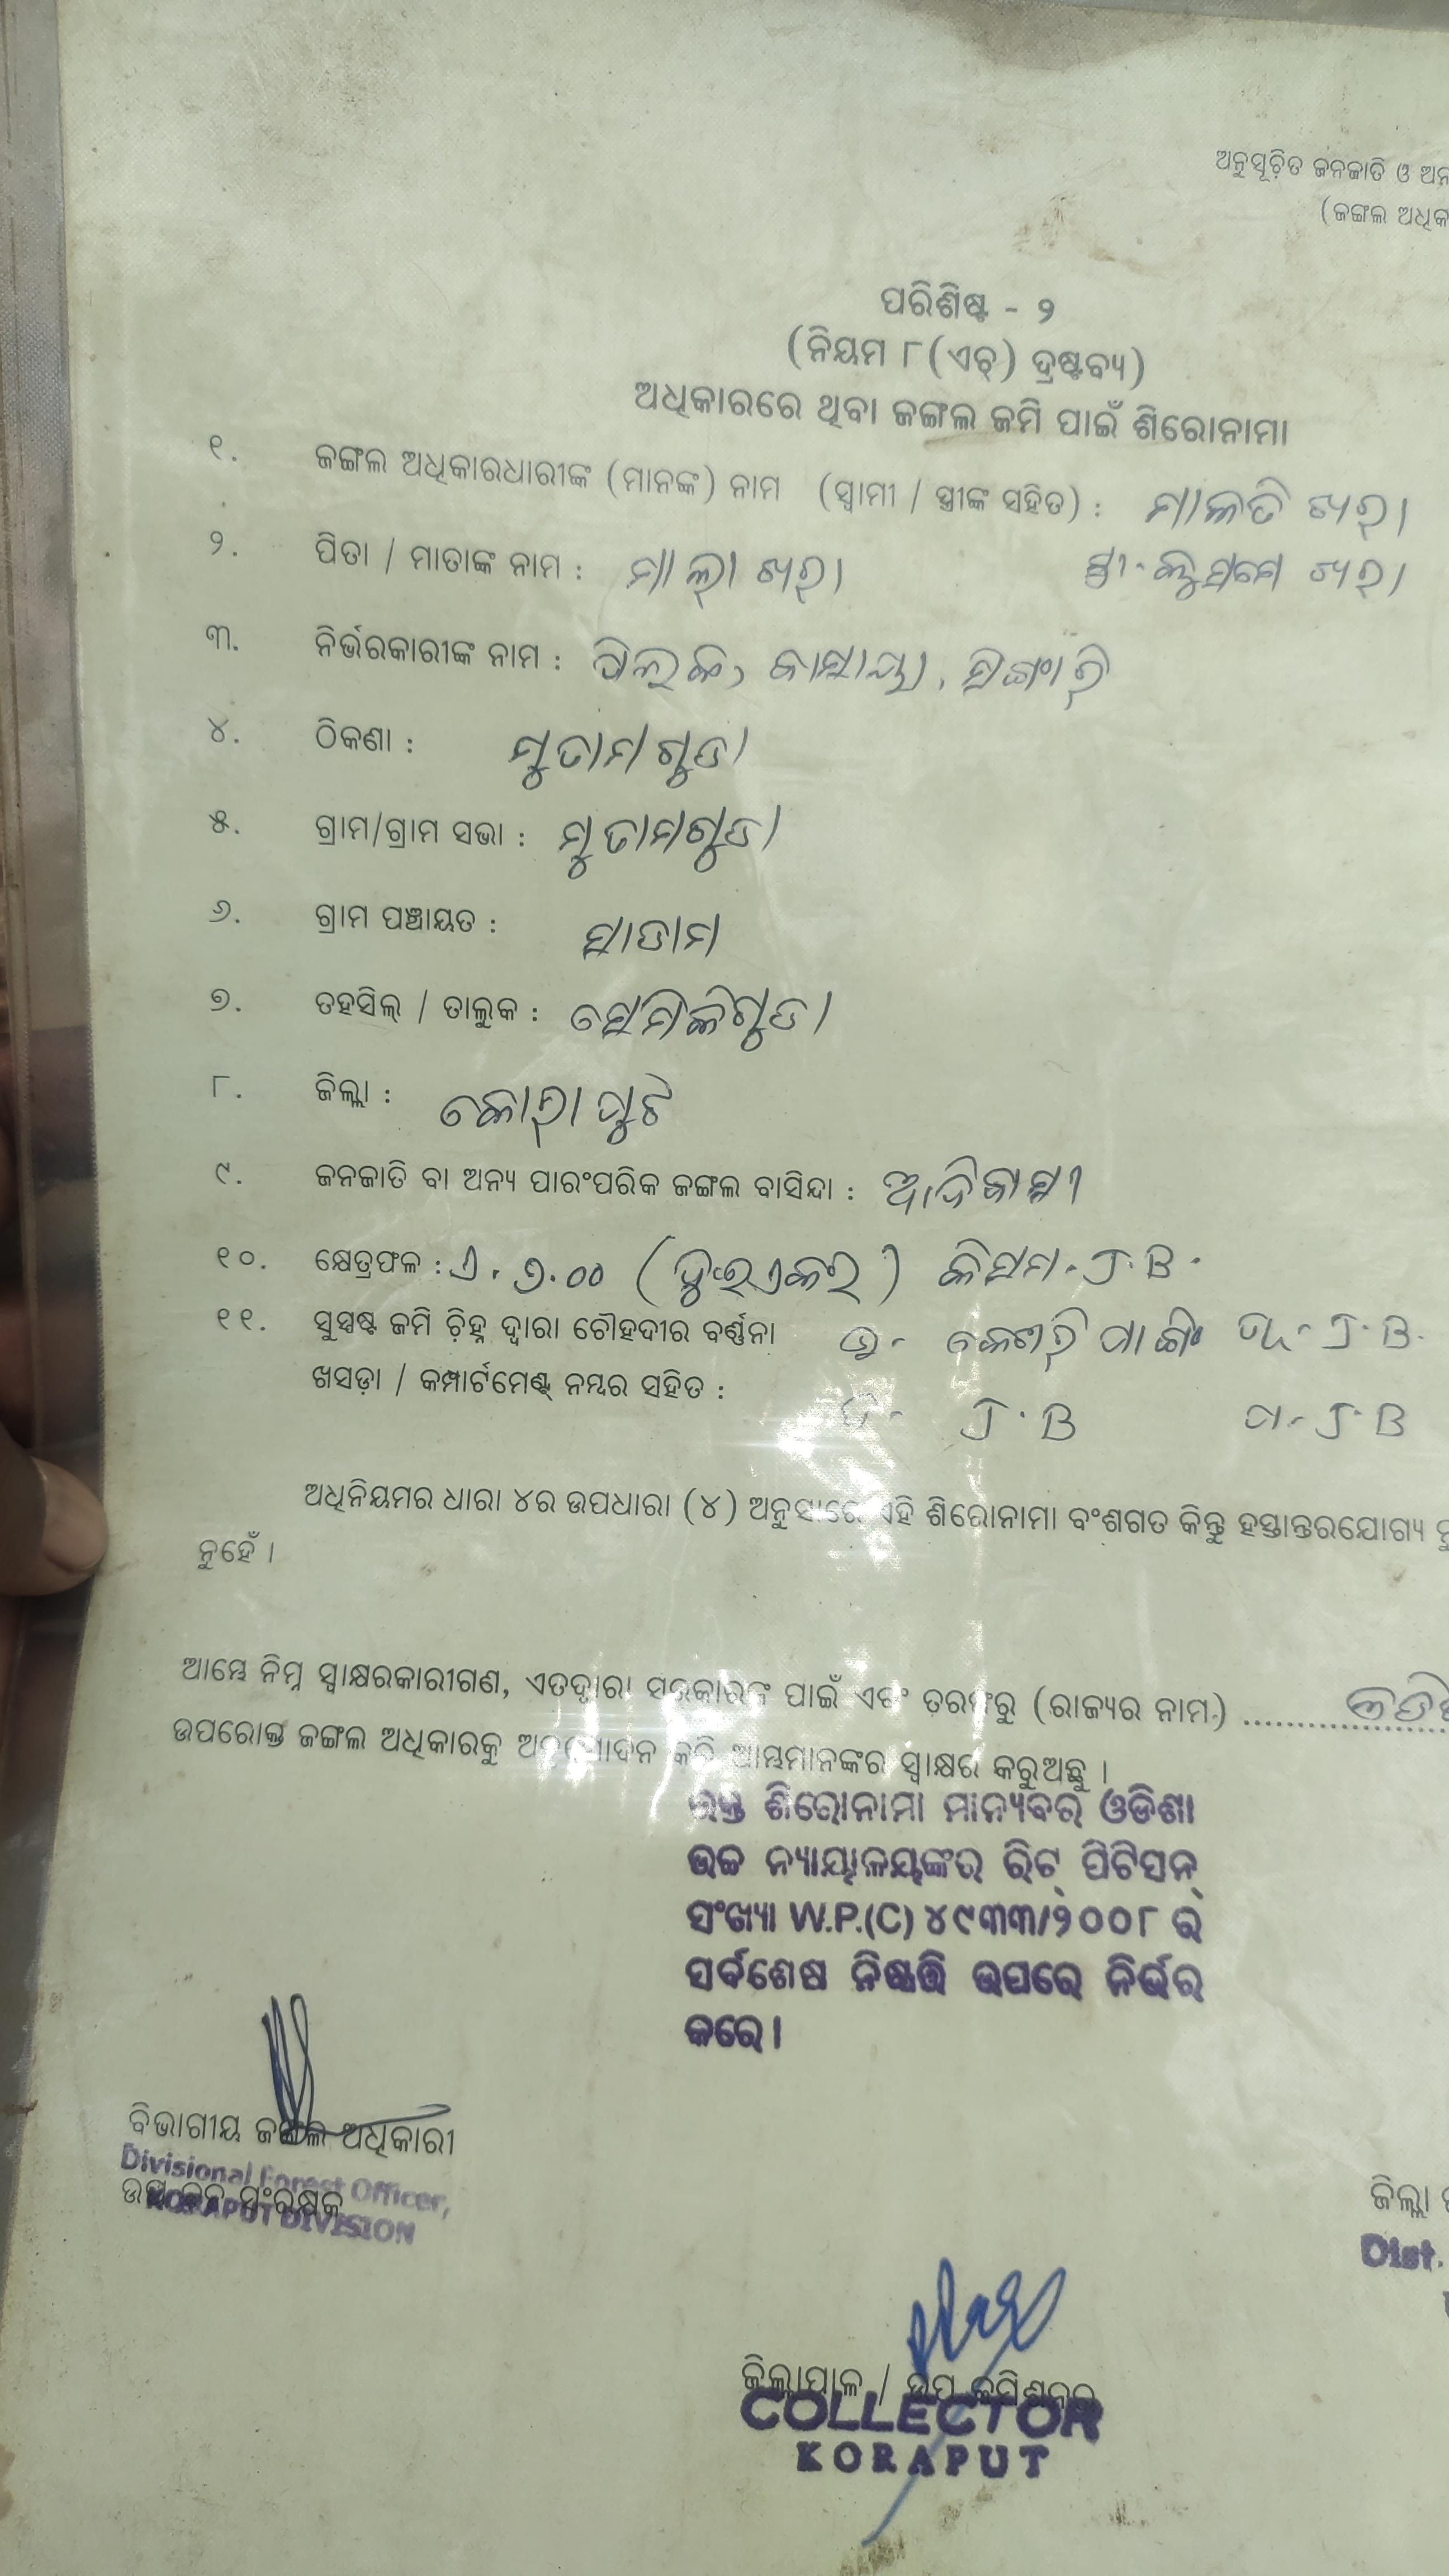 ଅନୁସୂଚିତ ଜନଜାତି ଓ
(ଜଙ୍ଗଲ
ପରିଶିଷ୍ଟ - ୨
(ନିୟମ ୮(ଏଚ୍) ଦ୍ରଷ୍ଟବ୍ୟ)
ଅଧିକାରରେ ଥିବା ଜଙ୍ଗଲ ଜମି ପାଇଁ ଶିରୋନାମା
୧. ଜଙ୍ଗଲ ଅଧିକାରଧାରୀଙ୍କ (ମାନଙ୍କ) ନାମ (ସ୍ୱାମୀ / ସ୍ତ୍ରୀଙ୍କ ସହିତ) : ମାଳତି ଖରା
୨. ପିତା / ମାତାଙ୍କ ନାମ : ଖରା ଖରା
୩. ନିର୍ଭରକାରୀଙ୍କ ନାମ :
୪. ଠିକଣା : ମୁତାମଗୁଡା
୫. ଗ୍ରାମ/ଗ୍ରାମ ସଭା : ମୁତାମଗୁଡା
୬. ଗ୍ରାମ ପଞ୍ଚାୟତ :
୭. ତହସିଲ୍ / ତାଲୁକ : ସେମିଳିଗୁଡା
୮. ଜିଲ୍ଲା : କୋରାପୁଟ
୯. ଜନଜାତି ବା ଅନ୍ୟ ପାରଂପରିକ ଜଙ୍ଗଲ ବାସିନ୍ଦା : ଆଦିବାସୀ
୧୦. କ୍ଷେତ୍ରଫଳ : ଏ. ୨.୦୦ (ଦୁଇଏକର) କିସମ. J.B.
୧୧. ସୁସ୍ପଷ୍ଟ ଜମି ଚିହ୍ନ ଦ୍ୱାରା ଚୌହଦୀର ବର୍ଣ୍ଣନା ଉ- J.B.
ଖସଡ଼ା / କମ୍ପାର୍ଟମେଣ୍ଟ୍ ନମ୍ବର ସହିତ : J.B ପ- J.B
ଅଧିନିୟମର ଧାରା ୪ର ଉପଧାରା (୪) ଅନୁସାରେ ଏହି ଶିରୋନାମା ବଂଶଗତ କିନ୍ତୁ ହସ୍ତାନ୍ତରଯୋଗ୍ୟ
ନୁହେଁ ।
ଆମ୍ଭେ ନିମ୍ନ ସ୍ୱାକ୍ଷରକାରୀଗଣ, ଏତଦ୍ୱାରା ସରକାରଙ୍କ ପାଇଁ ଏବଂ ତରଫରୁ (ରାଜ୍ୟର ନାମ)
ଉପରୋକ୍ତ ଜଙ୍ଗଲ ଅଧିକାରକୁ ଅନୁମୋଦନ କରି ଆମ୍ଭମାନଙ୍କର ସ୍ୱାକ୍ଷର କରୁଅଛୁ ।
ଉକ୍ତ ଶିରୋନାମା ମାନ୍ୟବର ଓଡିଶା
ଉଚ୍ଚ ନ୍ୟାୟାଳୟଙ୍କର ରିଟ୍ ପିଟିସନ୍
ସଂଖ୍ୟା W.P.(C) ୪୯୩୩/୨୦୦୮ ର
ସର୍ବଶେଷ ନିଷ୍ପତ୍ତି ଉପରେ ନିର୍ଭର
କରେ ।
ବିଭାଗୀୟ ଜଙ୍ଗଲ ଅଧିକାରୀ
Divisional Forest Officer,
ଉପ ବନ ସଂରକ୍ଷକ
KORAPUT DIVISION
ଜିଲ୍ଲା
Dist.
ଜିଲ୍ଲାପାଳ / ଉପ କମିଶନର
COLLECTOR
KORAPUT